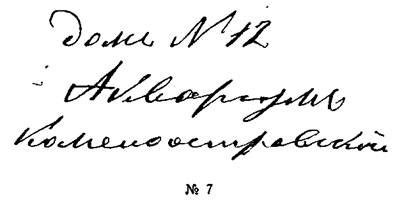 Домъ N 12
Аквариумъ
Каменоостровской
№ 7